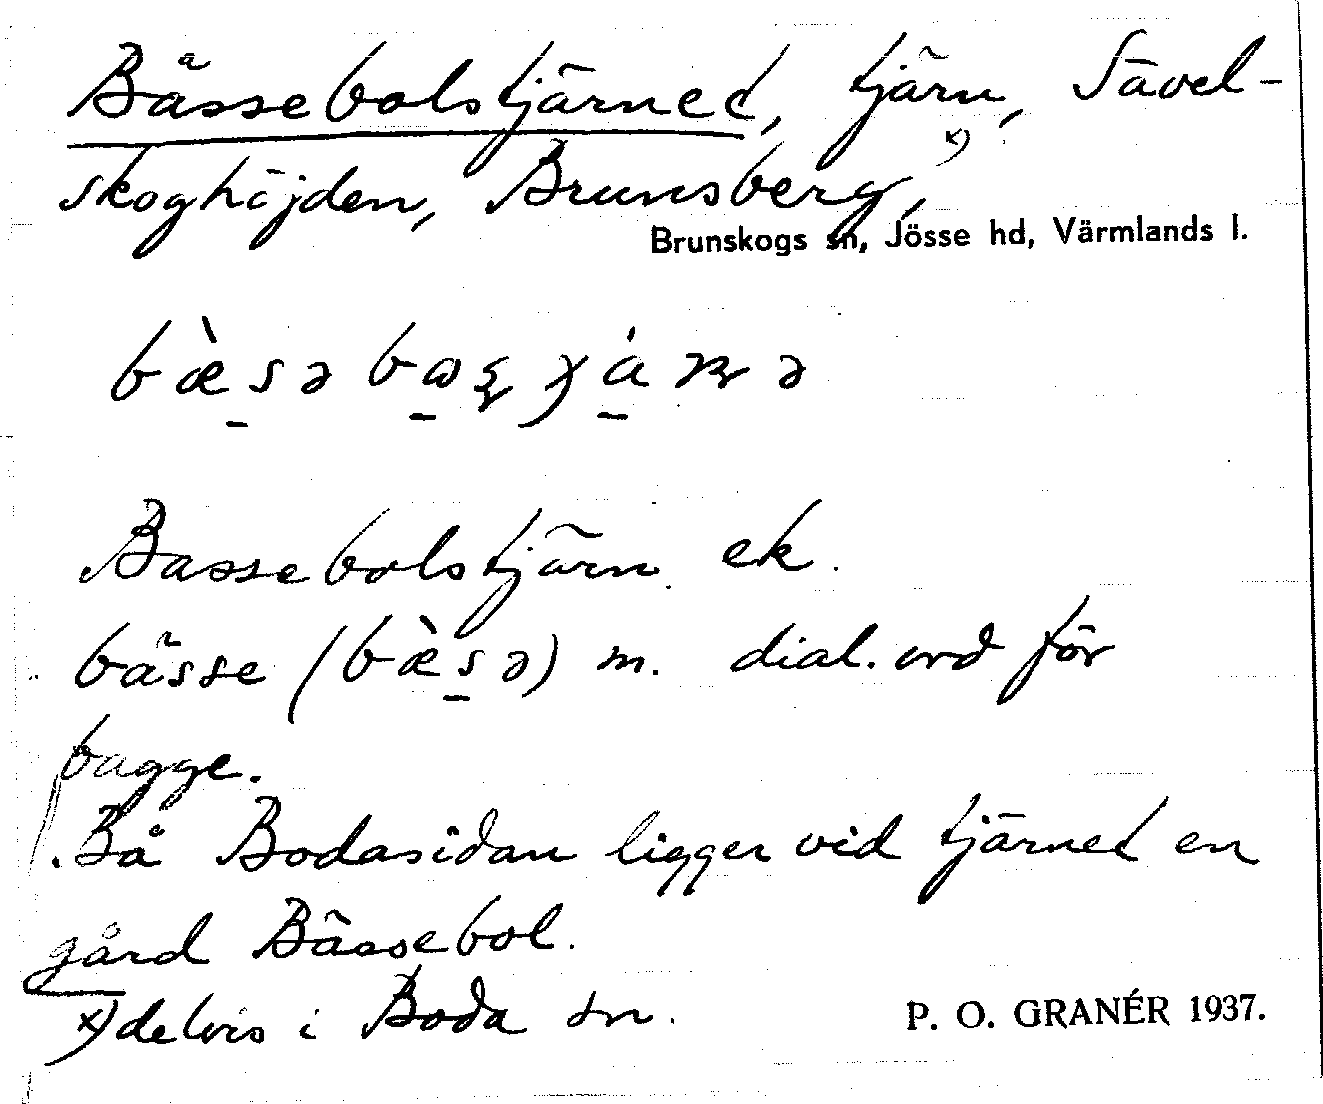 Bässebolstjärnet, tjärn, Sävel-
skoghöjden, Brunsberg, x)
Brunskogs sn, Jösse hd, Värmlands l.
Bassebolstjärn ek.
bässe (bæ̀s̠ə) m. dial. ord för
bagge.
På Bodasidan ligger vid tjärnet en
gård Bässebol.
x) delvis i Boda sn.
P. O. GRANÉR 1937.